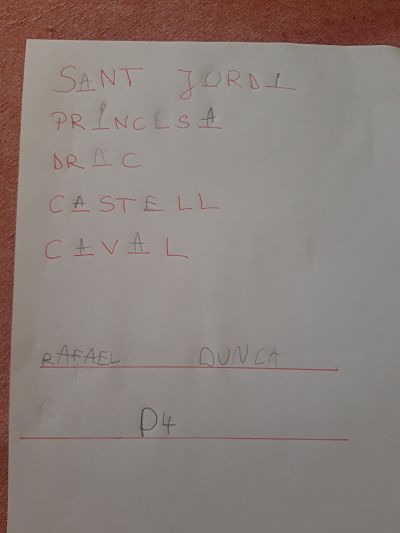 SANT JORDI
PRINCESA
DRAC
CASTELL
CAVAL
RAFAEL DUNCA
P4